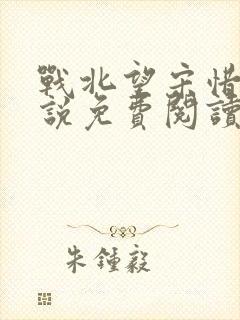 戰北望宋惜
說免費閱讀
朱鍾毅